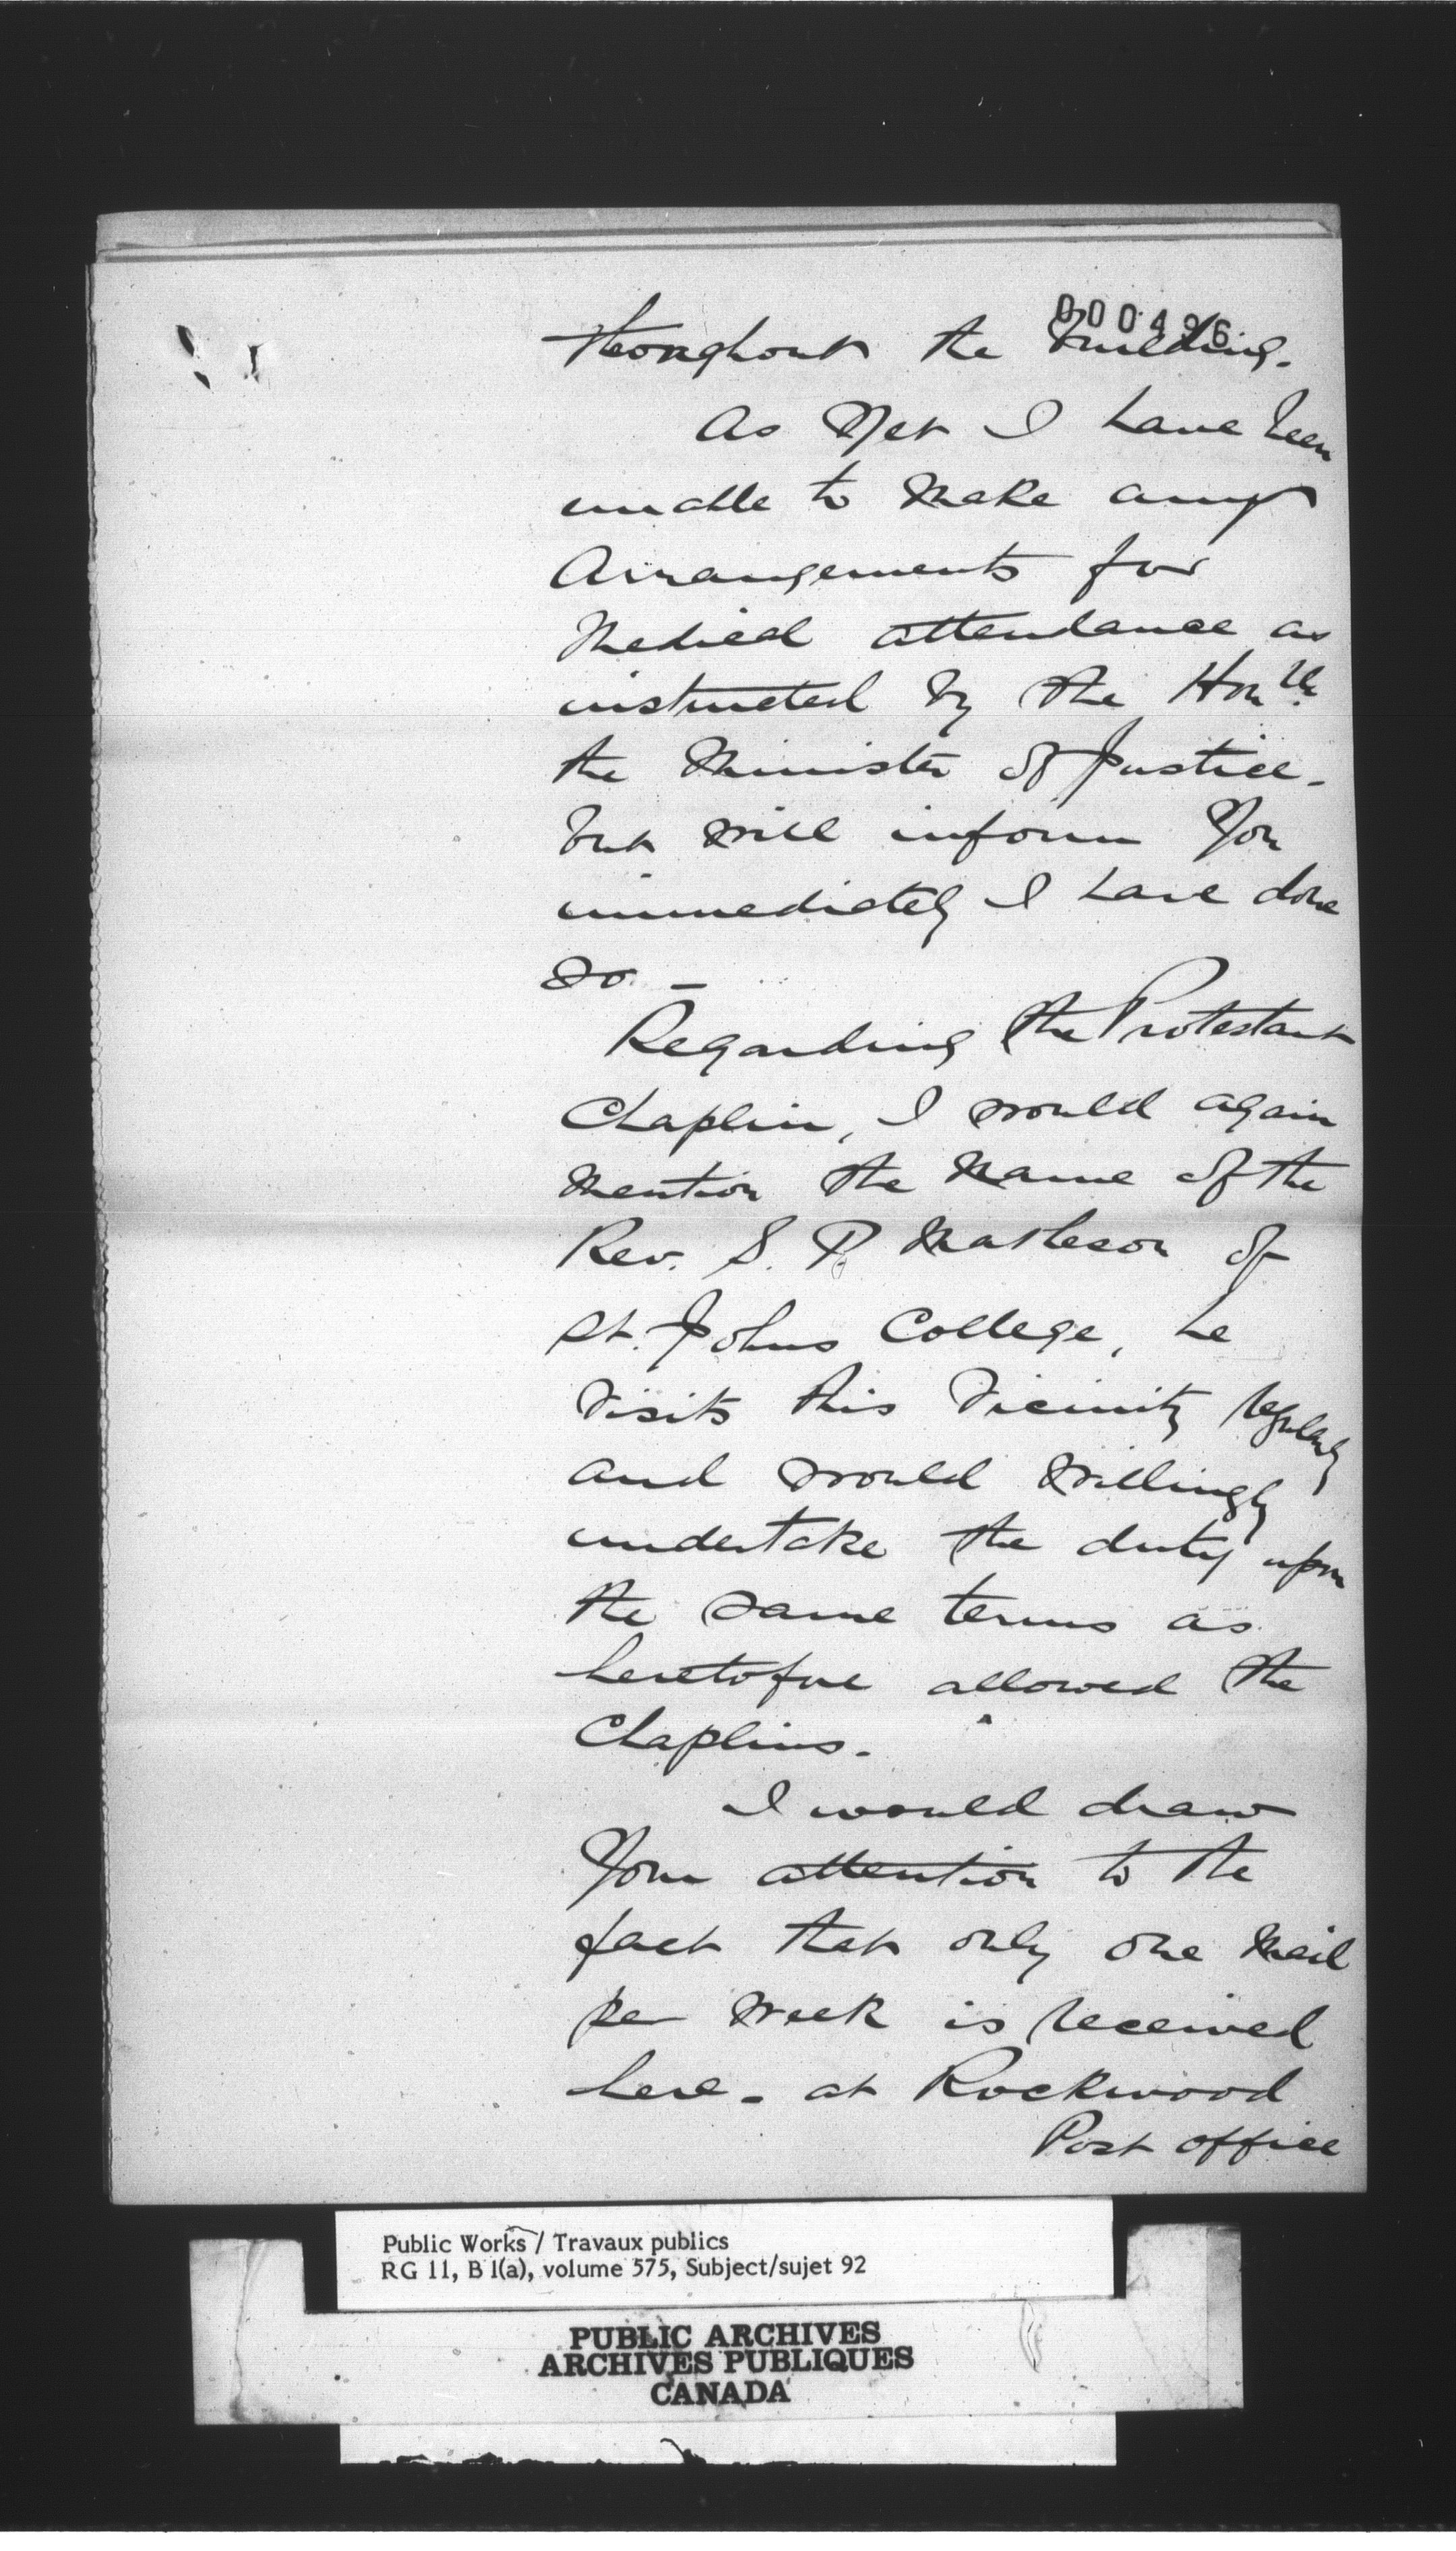 000496
throughout the building.
As Yet I have been
unable to Make any
Arrangements for
Medical attendance as
instructed by the Honble
the Minister of Justice -
but will inform You
immediately I have done
so. -
Regarding the Protestant
Chaplin, I would again
Mention the Name of the
Rev. S. P. Matheson of
St. Johns College, he
Visits this Vicinity regularly
and would Willingly
undertake the duty upon
the same terms as
heretofore allowed the
Chaplins.
I would draw
Your attention to the
fact that only one Mail
per Week is received
here - at Rockwood
Post office
Public Works / Travaux publics
RG 11, B 1(a), volume 575, Subject/sujet 92
PUBLIC ARCHIVES
ARCHIVES PUBLIQUES
CANADA